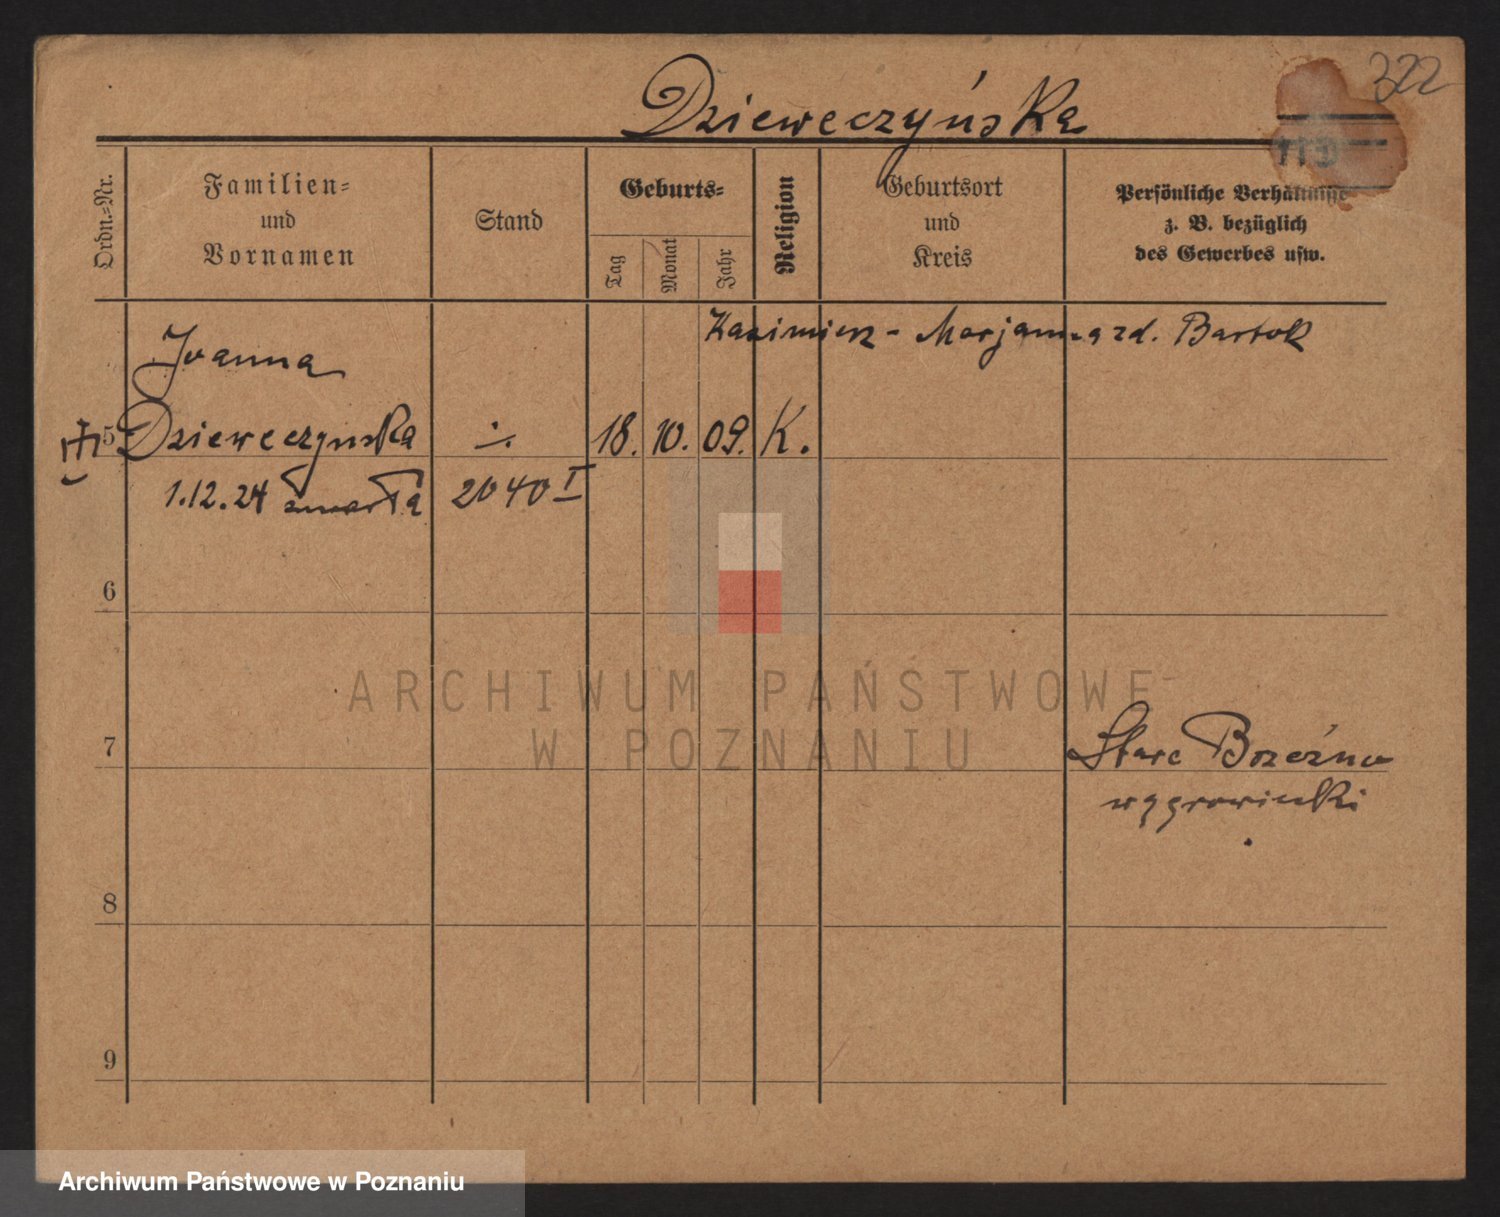 322
Dzieweczyńska
Ordn.=Nr.
Familien=
und
Vornamen
Stand
Geburts=
Tag
Monat
Jahr
Religion
Geburtsort
und
Kreis
Persönliche Verhältnisse
z. B. bezüglich
des Gewerbes usw.
Kazimierz - Marjanna zd. Bartok
Joanna
5 Dzieweczynska ÷ 18. 10. 09. K.
1.12.24 zmarła 2040 I
6
ARCHIWUM PAŃSTWOWE
W POZNANIU
7 Stare Brzeźno
wągrowiecki
8
9
Archiwum Państwowe w Poznaniu